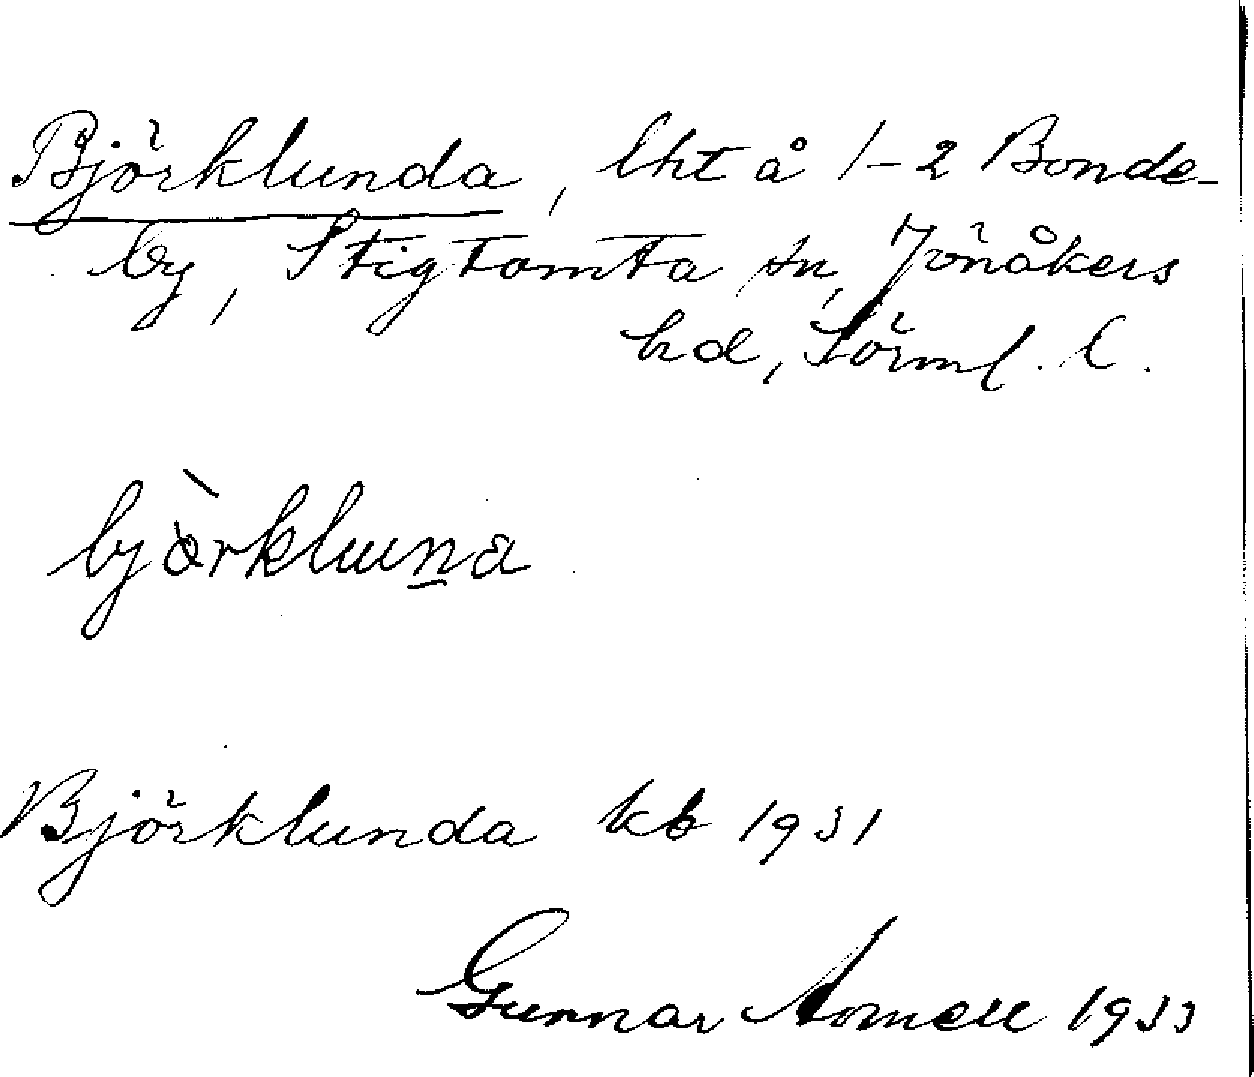 Björklunda, lht å 1-2 Bonde-
by, Stigtomta sn, Jönåkers
hd, Sörml. l.
bjòrkluna
Björklunda kb 1931
Gunnar 1933